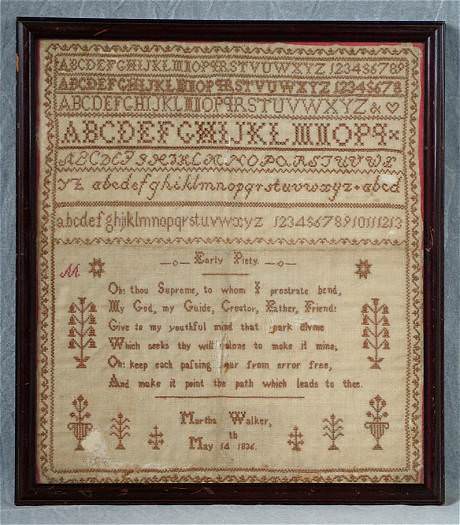 ABCDEFGHIJKLMNOPQRSTUVWXYZ 123456789
ABCDEFGHIJKLMNOPQRSTUVWXYZ 12345678
ABCDEFGHIJKLMNOPQRSTUVWXYZ &
ABCDEFGHIJKLMNOPQ
ABCDEFGHIJKLMNOPQRSTUVWX
YZ abcdefghijklmnopqrstuvwxyz abcd
abcdefghijklmnopqrstuvwxyz 12345678910111213
Early Piety.
M
Oh! thou Supreme, to whom I prostrate bend,
My God, my Guide, Creator, Father, Friend!
Give to my youthful mind that park divine
Which seeks thy will alone to make it mine;
Oh! keep each paſsing from error free,
And make it point the path which leads to thee.
Martha Walker,
May 14th 1836.